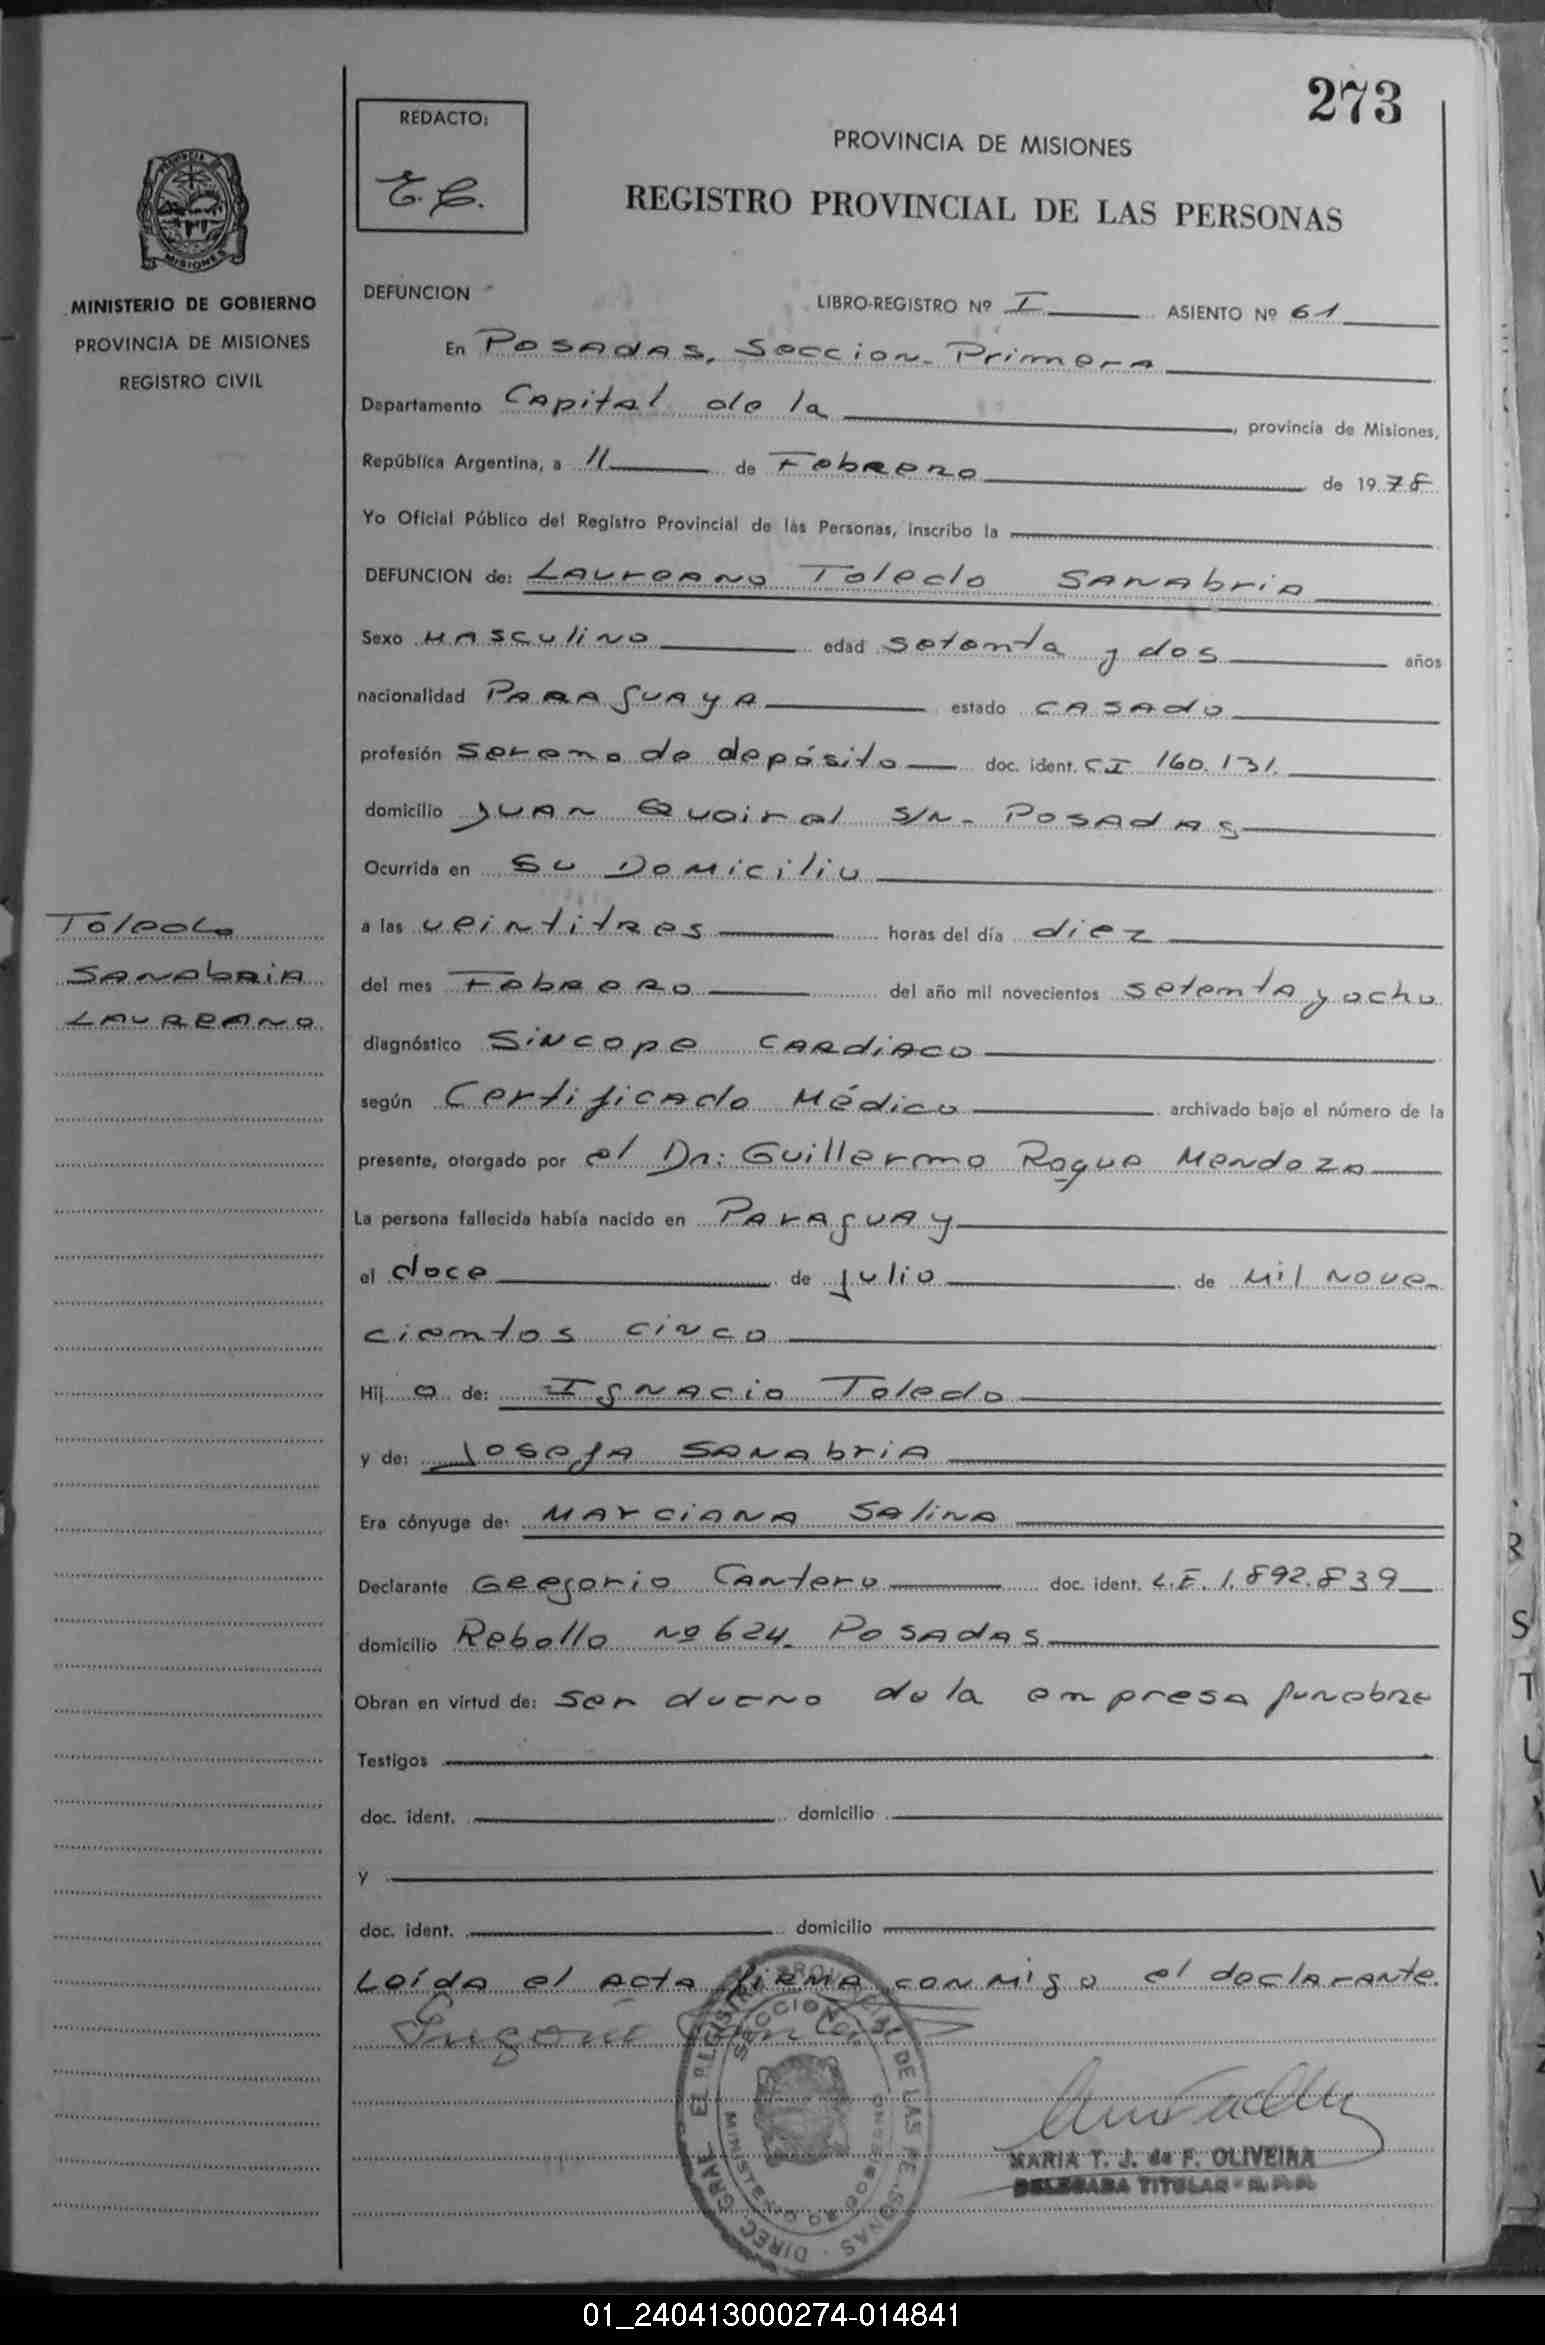 273
REDACTO:
E. C.
PROVINCIA DE MISIONES
REGISTRO PROVINCIAL DE LAS PERSONAS
MISIONES
MINISTERIO DE GOBIERNO
PROVINCIA DE MISIONES
REGISTRO CIVIL
DEFUNCION
LIBRO-REGISTRO Nº I ASIENTO Nº 61
En Posadas, Seccion Primera
Departamento Capital de la, provincia de Misiones,
República Argentina, a 11 de Febrero de 1978
Yo Oficial Público del Registro Provincial de las Personas, inscribo la
DEFUNCION de: Laureano Toledo Sanabria
Sexo Masculino edad setenta y dos años
nacionalidad Paraguaya estado casado
profesión sereno de depósito doc. ident. CI 160.131.
domicilio Juan Queiral s/n- Posadas
Ocurrida en su Domicilio
a las veintitres horas del día diez
del mes Febrero del año mil novecientos setenta y ocho
diagnóstico Sincope cardiaco
según Certificado Médico archivado bajo el número de la
presente, otorgado por el Dr: Guillermo Roque Mendoza
La persona fallecida había nacido en Paraguay
el doce de julio de mil nove-
cientos cinco
Hij o de: Ignacio Toledo
y de: Josefa Sanabria
Era cónyuge de: Marciana Salina
Declarante Gregorio Cantero doc. ident. L.E. 1.892.839
domicilio Rebollo Nº 624- Posadas
Obran en virtud de: Ser dueno de la empresa funebre
Testigos
doc. ident. domicilio
y
doc. ident. domicilio
Leída el acta firma conmigo el declarante.
MARIA T. J. de F. OLIVEIRA
DELEGADA TITULAR - R.P.P.
Toledo
Sanabria
Laureano
R
S
T
01_240413000274-014841